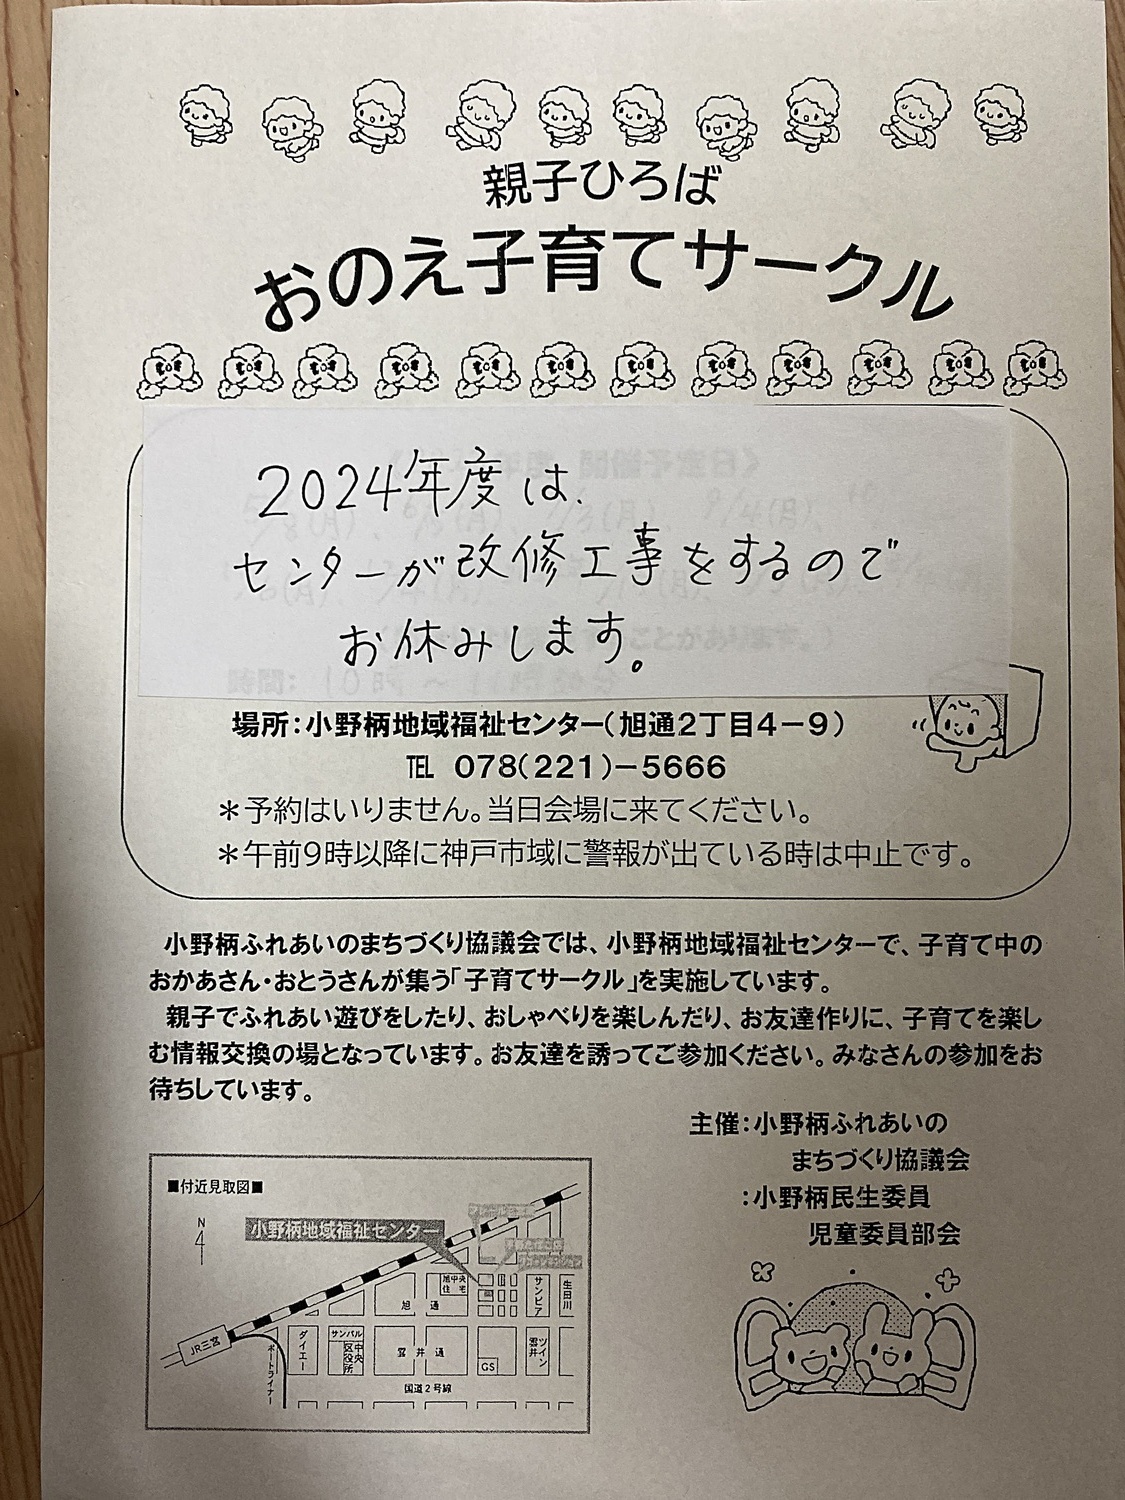 親子ひろば
おのえ子育てサークル
2024年度は、
センターが改修工事をするので
お休みします。
時間：10時～11時30分
場所：小野柄地域福祉センター（旭通2丁目4－9）
℡ 078(221)－5666
＊予約はいりません。当日会場に来てください。
＊午前9時以降に神戸市域に警報が出ている時は中止です。
小野柄ふれあいのまちづくり協議会では、小野柄地域福祉センターで、子育て中の
おかあさん・おとうさんが集う「子育てサークル」を実施しています。
親子でふれあい遊びをしたり、おしゃべりを楽しんだり、お友達作りに、子育てを楽し
む情報交換の場となっています。お友達を誘ってご参加ください。みなさんの参加をお
待ちしています。
主催：小野柄ふれあいの
まちづくり協議会
：小野柄民生委員
児童委員部会
■付近見取図■
N
小野柄地域福祉センター
旭中央
住宅
サンピア
生田川
旭通
JR三宮
ポートライナー
ダイエー
サンパル
中央
区役所
雲井通
GS
ツイン
雲井
国道2号線